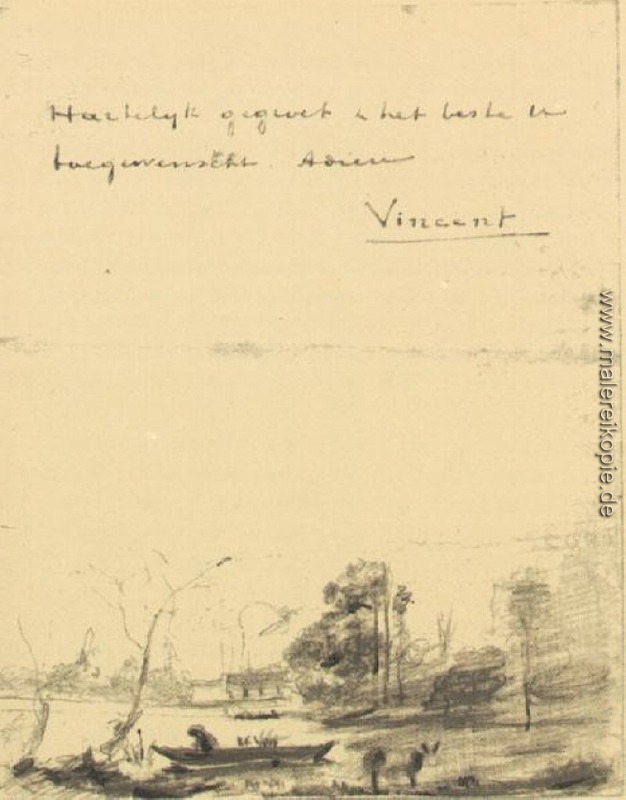 Hartelijk gegroet & het beste U
toegewenscht. Adieu
Vincent
www.malereikopie.de